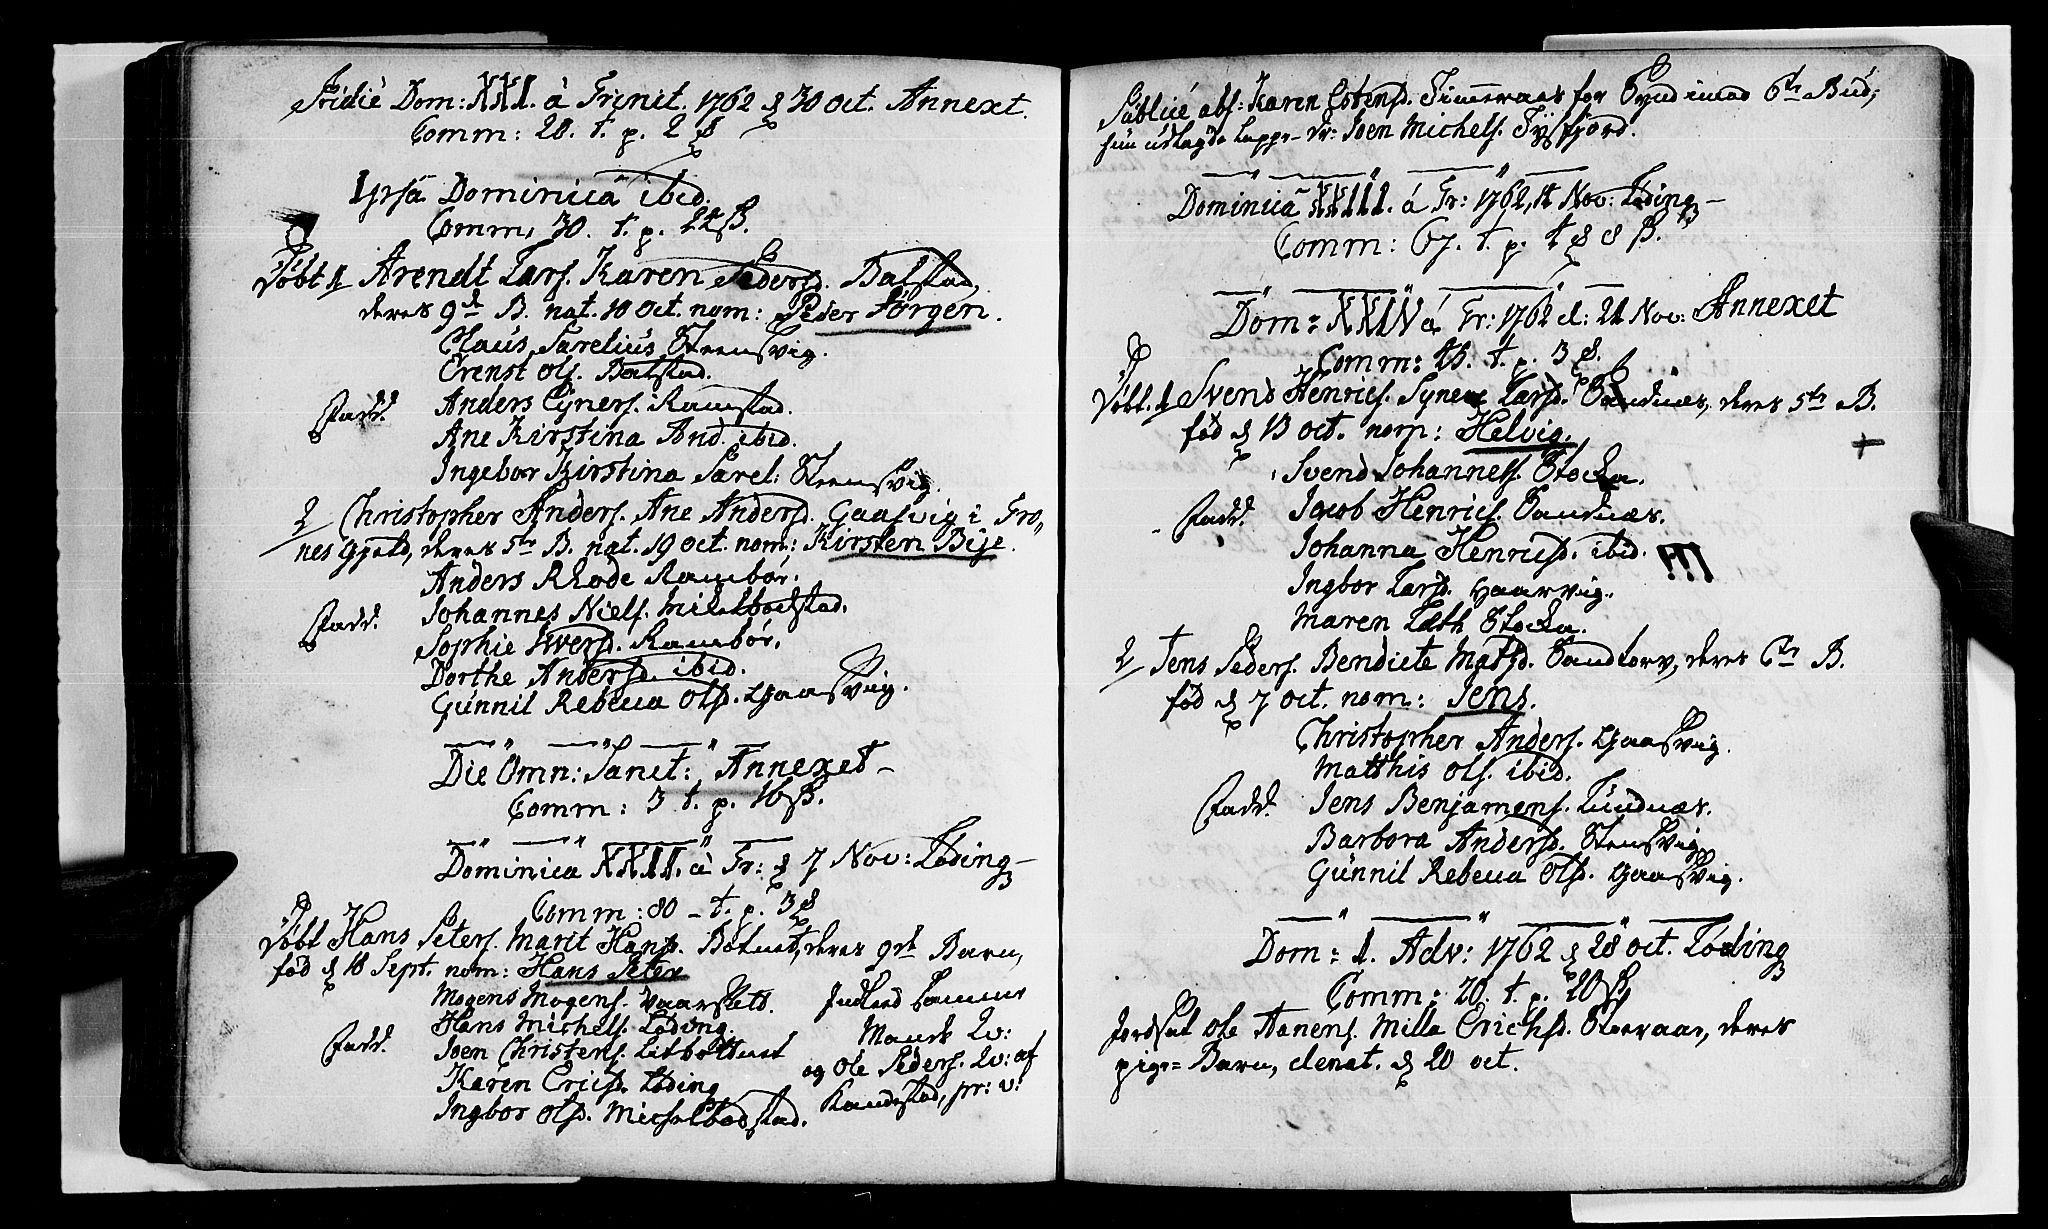 Pridie Dom: XXI. à Trinit. 1762 d 30 Oct. Annexet.
Comm: 20. t. p. 2
Ipsâ Dominicâ ibid.
Comm. 30. t. p. 24 ß.
Døbt 1 Arendt Lars. Karen Pedersd. Balstad,
deres 9de B. nat. 10 Oct. nom: Peder Jörgen.
Claus Sarelius Steensvig.
Erenst Ols. Balstad.
Fadd. Anders Eyners. Ramstad.
Ane Kirstina And. ibid.
Ingebor Kirstina Sarel: Steensvig.
2 Christopher Anders. Ane Andersd. Gaasvig i Tro-
nes Gjeld, deres 5te B. nat. 19 Oct. nom: Kirsten Bije.
Anders Rhode Rambør.
Fadd. Johannes Niels. Mikelboelstad.
Sophie Iversd. Rambør.
Dorthe Andersd. ibid.
Gunnil Rebecca Olsd. Gaasvig.
Die Omn: Sanct: Annexet
Comm: 3 t. p. 16 ß.
Dominica XXII. à Tr: d 7 Nov: Löding
Comm: 80 - t. p. 3
Døbt Hans Peters. Marit Hansd. Botnet, deres 9de Barn,
fød d 18 Sept. nom: Hans Peter
Mogens Mogens. Vaarskets.
Hans Michels. Löding.
Fadd. Joen Christens.
Karen Ericsd. Löding
Ingbor Olsd. Michelboelstad.
Indled Samme
Mands Qv:
og Ole Peders. Qv: af
Kandestad, pr: v:
Publicè abs: Karen Estensd. for Synd imod 6te Bud;
hun udlagde Lappe- Dr: Joen Michels. Tysfjord.
Dominicâ XXIII. à Tr: 1762, 14 Nov: Löding
Comm: 67. t. p. 4 8 ß.
Dom: XXIV à Tr: 1762 d: 21 Nov: Annexet
Comm: 45. t. p. 3
Døbt. 1 Svend Henrics. Synene Larsd. Sandnæs, deres 5te B.
fød d 13 Oct. nom: Helvig. +
Svend Johannes. Stocka.
Fadd. Jacob Henrics. Sandnæs.
Johanna Henricsd. ibid. !!!
Ingbor Larsd. Haarvig.
Maren Læth Stocka.
2 Jens Peders. Bendicte Matsd. Sandtorv, deres 6te B.
fød d 7 Oct. nom: Jens.
Christopher Anders. Gaasvig.
Matthis Ols. ibid.
Fadd. Jens Benjamens. Lundnæs.
Barbora Andersd. Stensvig.
Gunnil Rebecca Olsd. Gaasvig.
Dom: 1. Adv: 1762 d 28 Oct. Löding
Comm: 20. t. p. 20 ß.
Jordsat Ole Hanens. Mille Erichsd. deres
pige-Barn, denat. d 20 Oct.